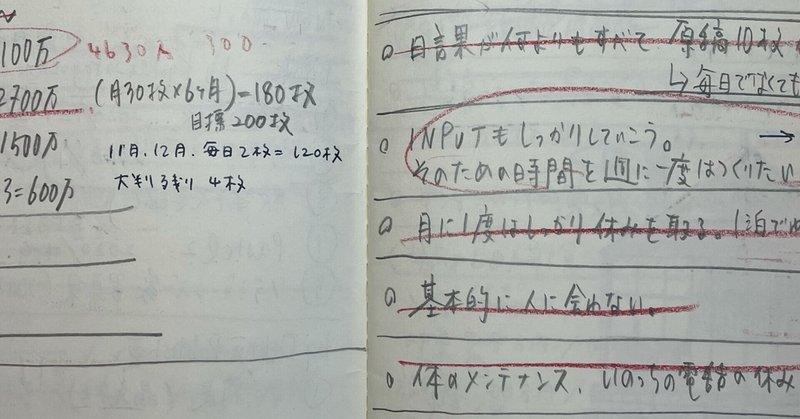 100万 4630人 300
2700万 (月30枚×6ヶ月)=180枚
目標200枚
1500万 11月、12月、毎日2枚=120枚
3=600万 大判残り 4枚
○ 日課が何よりもすべて 原稿10枚
↳毎日でなくても
○ INPUTもしっかりしていこう。 →
そのための時間を週に一度はつくりたい
○ 月に1度はしっかり休みを取る。1泊で
○ 基本的に人に会わない。
○ 体のメンテナンス、いのっちの電話の休み